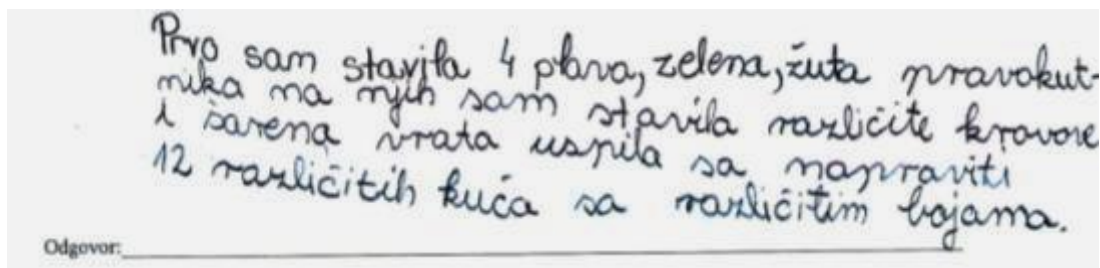 Prvo sam stavila 4 plava, zelena, žuta pravokut-
nika na njih sam stavila različite krovove
i šarena vrata uspila sa napraviti
12 različitih kuća sa različitim bojama.
Odgovor: